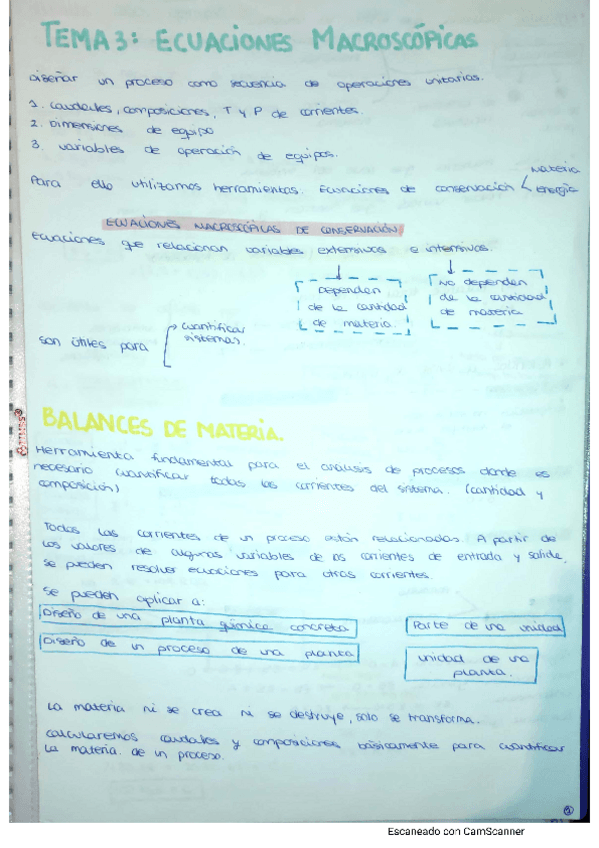 TEMA 3: ECUACIONES MACROSCÓPICAS
Diseñar un proceso como secuencia de operaciones unitarias.
1. caudales, composiciones, T y P de corrientes.
2. Dimensiones de equipo
3. variables de operación de equipos.
Para ello utilizamos herramientas. Ecuaciones de conservación
materia
energía
ECUACIONES MACROSCÓPICAS DE CONSERVACIÓN
Ecuaciones que relacionan variables extensivas e intensivas.
Dependen
de la cantidad
de materia.
No dependen
de la cantidad
de materia
son útiles para
cuantificar
sistemas.
BALANCES DE MATERIA.
Herramienta fundamental para el análisis de procesos donde es
necesario cuantificar todas las corrientes del sistema. (cantidad y
composición)
Todas las corrientes de un proceso están relacionadas. A partir de
los valores de algunas variables de las corrientes de entrada y salida,
se pueden resolver ecuaciones para otras corrientes.
Se pueden aplicar a:
Diseño de una planta química concreta
Parte de una unidad
Diseño de un proceso de una planta
unidad de una
planta.
La materia ni se crea ni se destruye, solo se transforma.
calcularemos caudales y composiciones básicamente para cuantificar
la materia de un proceso.
Escaneado con CamScanner